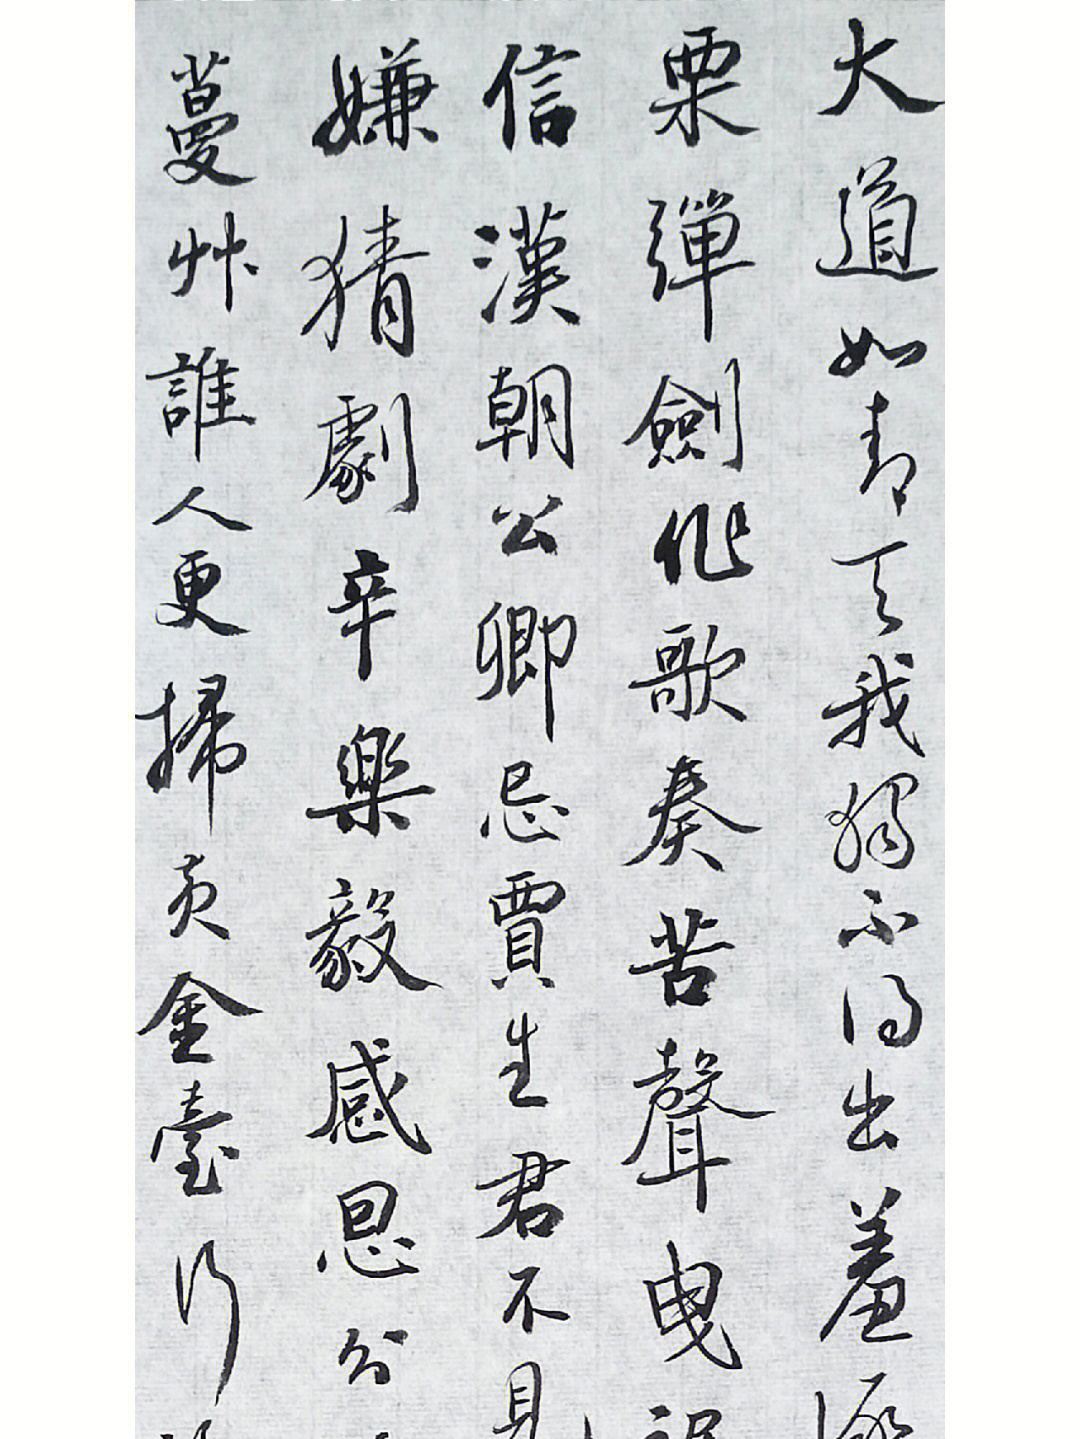 大道如青天我獨不得出羞逐
栗彈劍作歌奏苦聲曳裾
信漢朝公卿忌賈生君不見
嫌猜劇辛樂毅感恩分
蔓艸誰人更掃黃金臺行